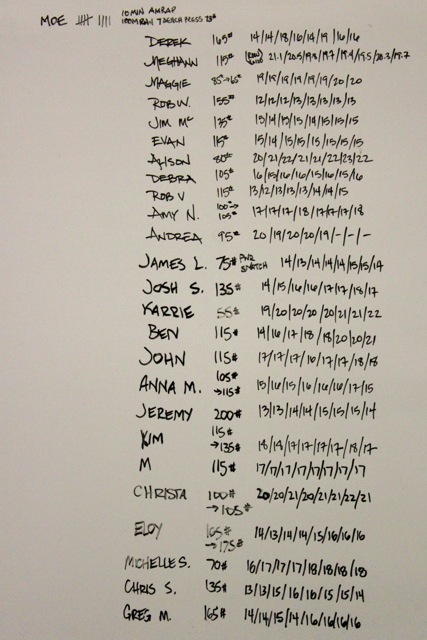 MOE 10 MIN AMRAP
100M RAN 7 BENCH PRESS
DEREK 165# 14/14/18/16/14/19/16/16
MEGHANN 115# (ROW) 21.1/20.5/19.8/19.7/19.4/19.5/20.3/19.7
MAGGIE 85#→65# 19/18/18/19/19/19/20/20
ROB W. 155# 12/12/12/13/13/13/13/13
JIM Mc 135# 13/14/15/15/14/15/15/15
EVAN 115# 15/14/15/15/15/15/15/15
ALISON 80# 20/21/22/21/21/22/23/22
DEBRA 105# 16/15/16/16/15/16/15/16
ROB V 115# 13/12/13/13/13/14/14/15
AMY N. 100#→ 105# 17/17/17/18/17/17/17/18
ANDREA 95# 20/19/20/20/19/-/-/-
JAMES L. 75# PWR SNATCH 14/13/14/14/14/15/15/14
JOSH S. 135# 14/15/16/16/17/17/18/17
KARRIE 55# 19/20/20/20/20/21/21/22
BEN 115# 14/16/17/18/18/20/20/21
JOHN 115# 17/17/17/16/17/17/18/18
ANNA M. 105# →115# 15/16/15/16/16/16/17/15
JEREMY 200# 13/13/14/14/15/15/15/14
KIM 115# →135# 18/18/17/17/17/17/18/17
M 115# 17/17/17/17/17/17/17/17
CHRISTA 100# →105# 20/20/21/20/21/21/22/21
ELOY 165# →175# 14/13/14/14/15/16/16/16
MICHELLE S. 70# 16/17/17/17/18/18/18/18
CHRIS S. 135# 13/13/15/16/16/15/15/14
GREG M. 165# 14/14/15/14/16/16/16/16